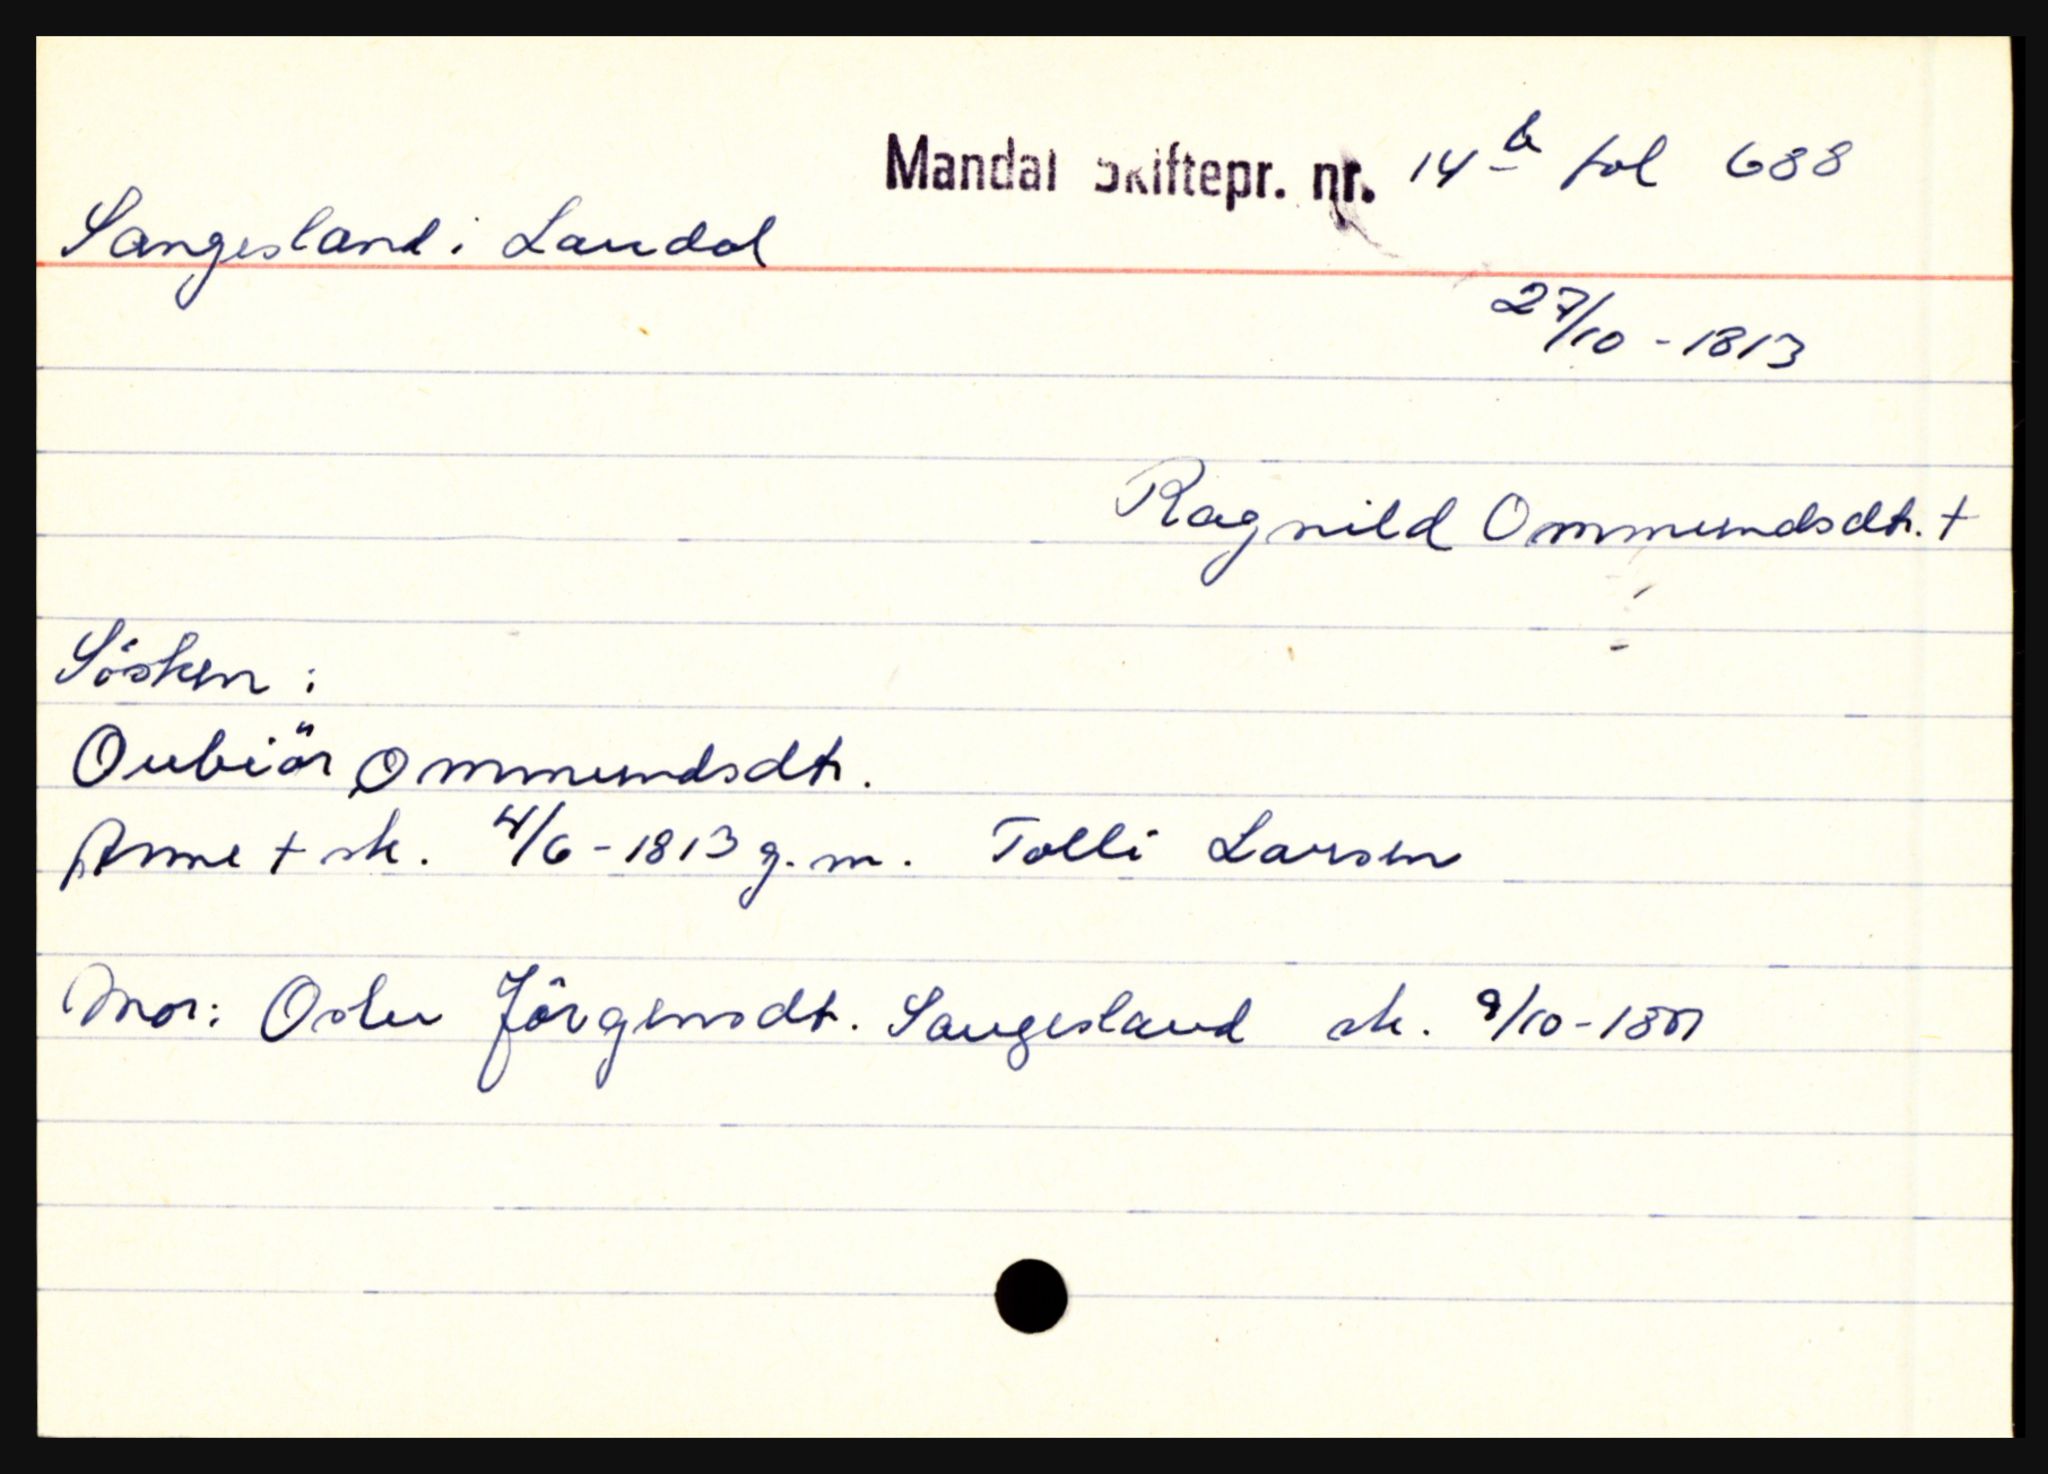 Mandal Skiftepr. nr. 14 b fol 688
Sangesland i Laudal
27/10 - 1813
Ragnild Ommundsdtr. +
Sösken :
Oubiör Ommundsdtr.
Anne + sk. 4/6 - 1813 g. m. Tolli Larsen
Mor: Jörgensdt. Sangesland sk. 9/10 - 1801